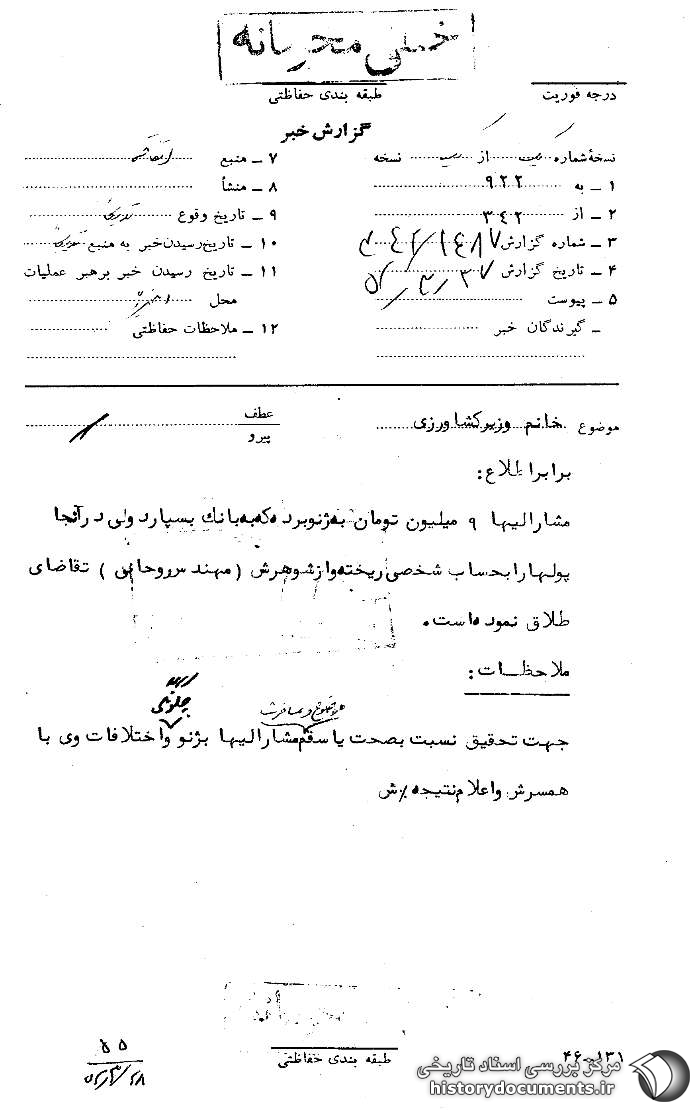 خیلی محرمانه
طبقه بندی حفاظتی
درجه فوریت
گزارش خبر
نسخهٔ شماره یک از یک نسخه
۱ ـ به ۹۲۲
۲ ـ از ۳۴۲
۳ ـ شماره گزارش
۴ ـ تاریخ گزارش
۵ ـ پیوست
ـ گیرندگان خبر
۷ ـ منبع
۸ ـ منشأ
۹ ـ تاریخ وقوع
۱۰ ـ تاریخ رسیدن خبر به منبع
۱۱ ـ تاریخ رسیدن خبر برهبر عملیات
محل
۱۲ ـ ملاحظات حفاظتی
موضوع خانم وزیر کشاورزی
عطف
پیرو
برابر اطلاع:
مشارالیها ۹ میلیون تومان به ژنو برده که به بانک بسپارد ولی در آنجا
پولها را بحساب شخصی ریخته و از شوهرش (مهندس روحانی) تقاضای
طلاق نموده است.
ملاحظات:
چگونگی
جهت تحقیق نسبت بصحت یا سقم مشارالیها بژنو و اختلافات وی با
همسرش و اعلام نتیجه
طبقه بندی حفاظتی
۴۶-۱۳۱
مرکز بررسی اسناد تاریخی
historydocuments.ir